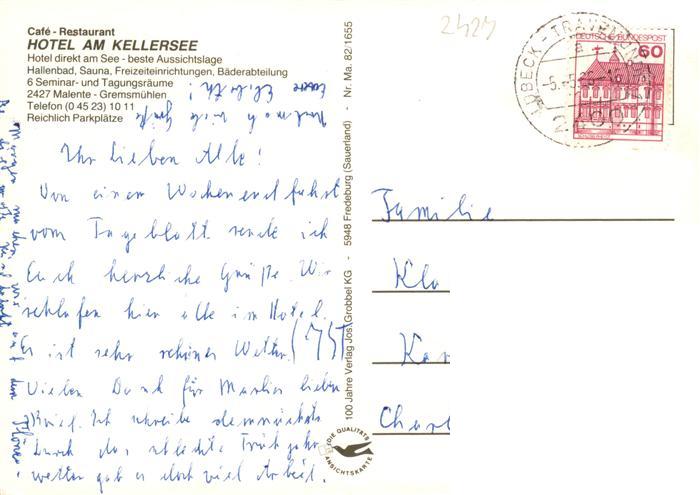 Café - Restaurant
HOTEL AM KELLERSEE
Hotel direkt am See - beste Aussichtslage
Hallenbad, Sauna, Freizeiteinrichtungen, Bäderabteilung
6 Seminar- und Tagungsräume
2427 Malente - Gremsmühlen
Telefon (0 45 23) 10 11
Reichlich Parkplätze
Ihr Lieben Alle!
Von einer Wochenendfahrt
vom Tageblatt sende ich
Euch herzliche Grüße. Wir
schlafen hier alle im Hotel.
Es ist sehr schönes Wetter.
Vielen Dank für Marlies lieben
Brief. Ich schreibe demnächst.
Durch das schlechte Frühjahrs-
wetter gab es doch viel Arbeit.
Nochmals viele Grüße
Eure Elisabeth!
100 Jahre Verlag Jos. Grobbel KG - 5948 Fredeburg (Sauerland) - Nr. Ma. 82/1655
DIE QUALITÄTS
ANSICHTSKARTE
2427
LÜBECK - TRAVEMÜNDE
a
DEUTSCHE BUNDESPOST
60
Familie
Kla
Kar
Charl